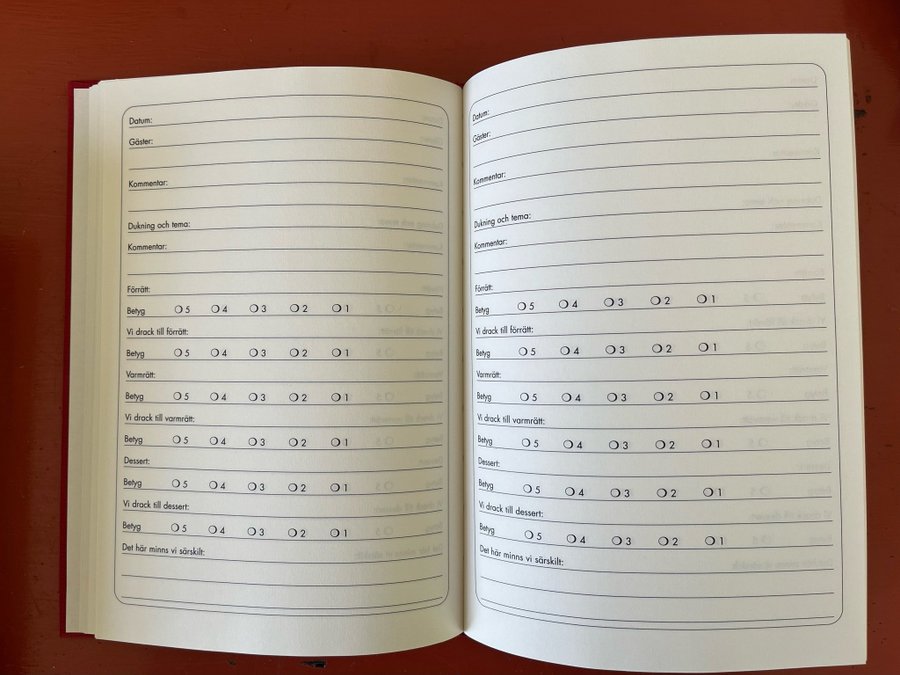 Datum:
Gäster:
Kommentar:
Dukning och tema:
Kommentar:
Förrätt:
Betyg ❍ 5 ❍ 4 ❍ 3 ❍ 2 ❍ 1
Vi drack till förrätt:
Betyg ❍ 5 ❍ 4 ❍ 3 ❍ 2 ❍ 1
Varmrätt:
Betyg ❍ 5 ❍ 4 ❍ 3 ❍ 2 ❍ 1
Vi drack till varmrätt:
Betyg ❍ 5 ❍ 4 ❍ 3 ❍ 2 ❍ 1
Dessert:
Betyg ❍ 5 ❍ 4 ❍ 3 ❍ 2 ❍ 1
Vi drack till dessert:
Betyg ❍ 5 ❍ 4 ❍ 3 ❍ 2 ❍ 1
Det här minns vi särskilt:
Datum:
Gäster:
Kommentar:
Dukning och tema:
Kommentar:
Förrätt:
Betyg ❍ 5 ❍ 4 ❍ 3 ❍ 2 ❍ 1
Vi drack till förrätt:
Betyg ❍ 5 ❍ 4 ❍ 3 ❍ 2 ❍ 1
Varmrätt:
Betyg ❍ 5 ❍ 4 ❍ 3 ❍ 2 ❍ 1
Vi drack till varmrätt:
Betyg ❍ 5 ❍ 4 ❍ 3 ❍ 2 ❍ 1
Dessert:
Betyg ❍ 5 ❍ 4 ❍ 3 ❍ 2 ❍ 1
Vi drack till dessert:
Betyg ❍ 5 ❍ 4 ❍ 3 ❍ 2 ❍ 1
Det här minns vi särskilt: